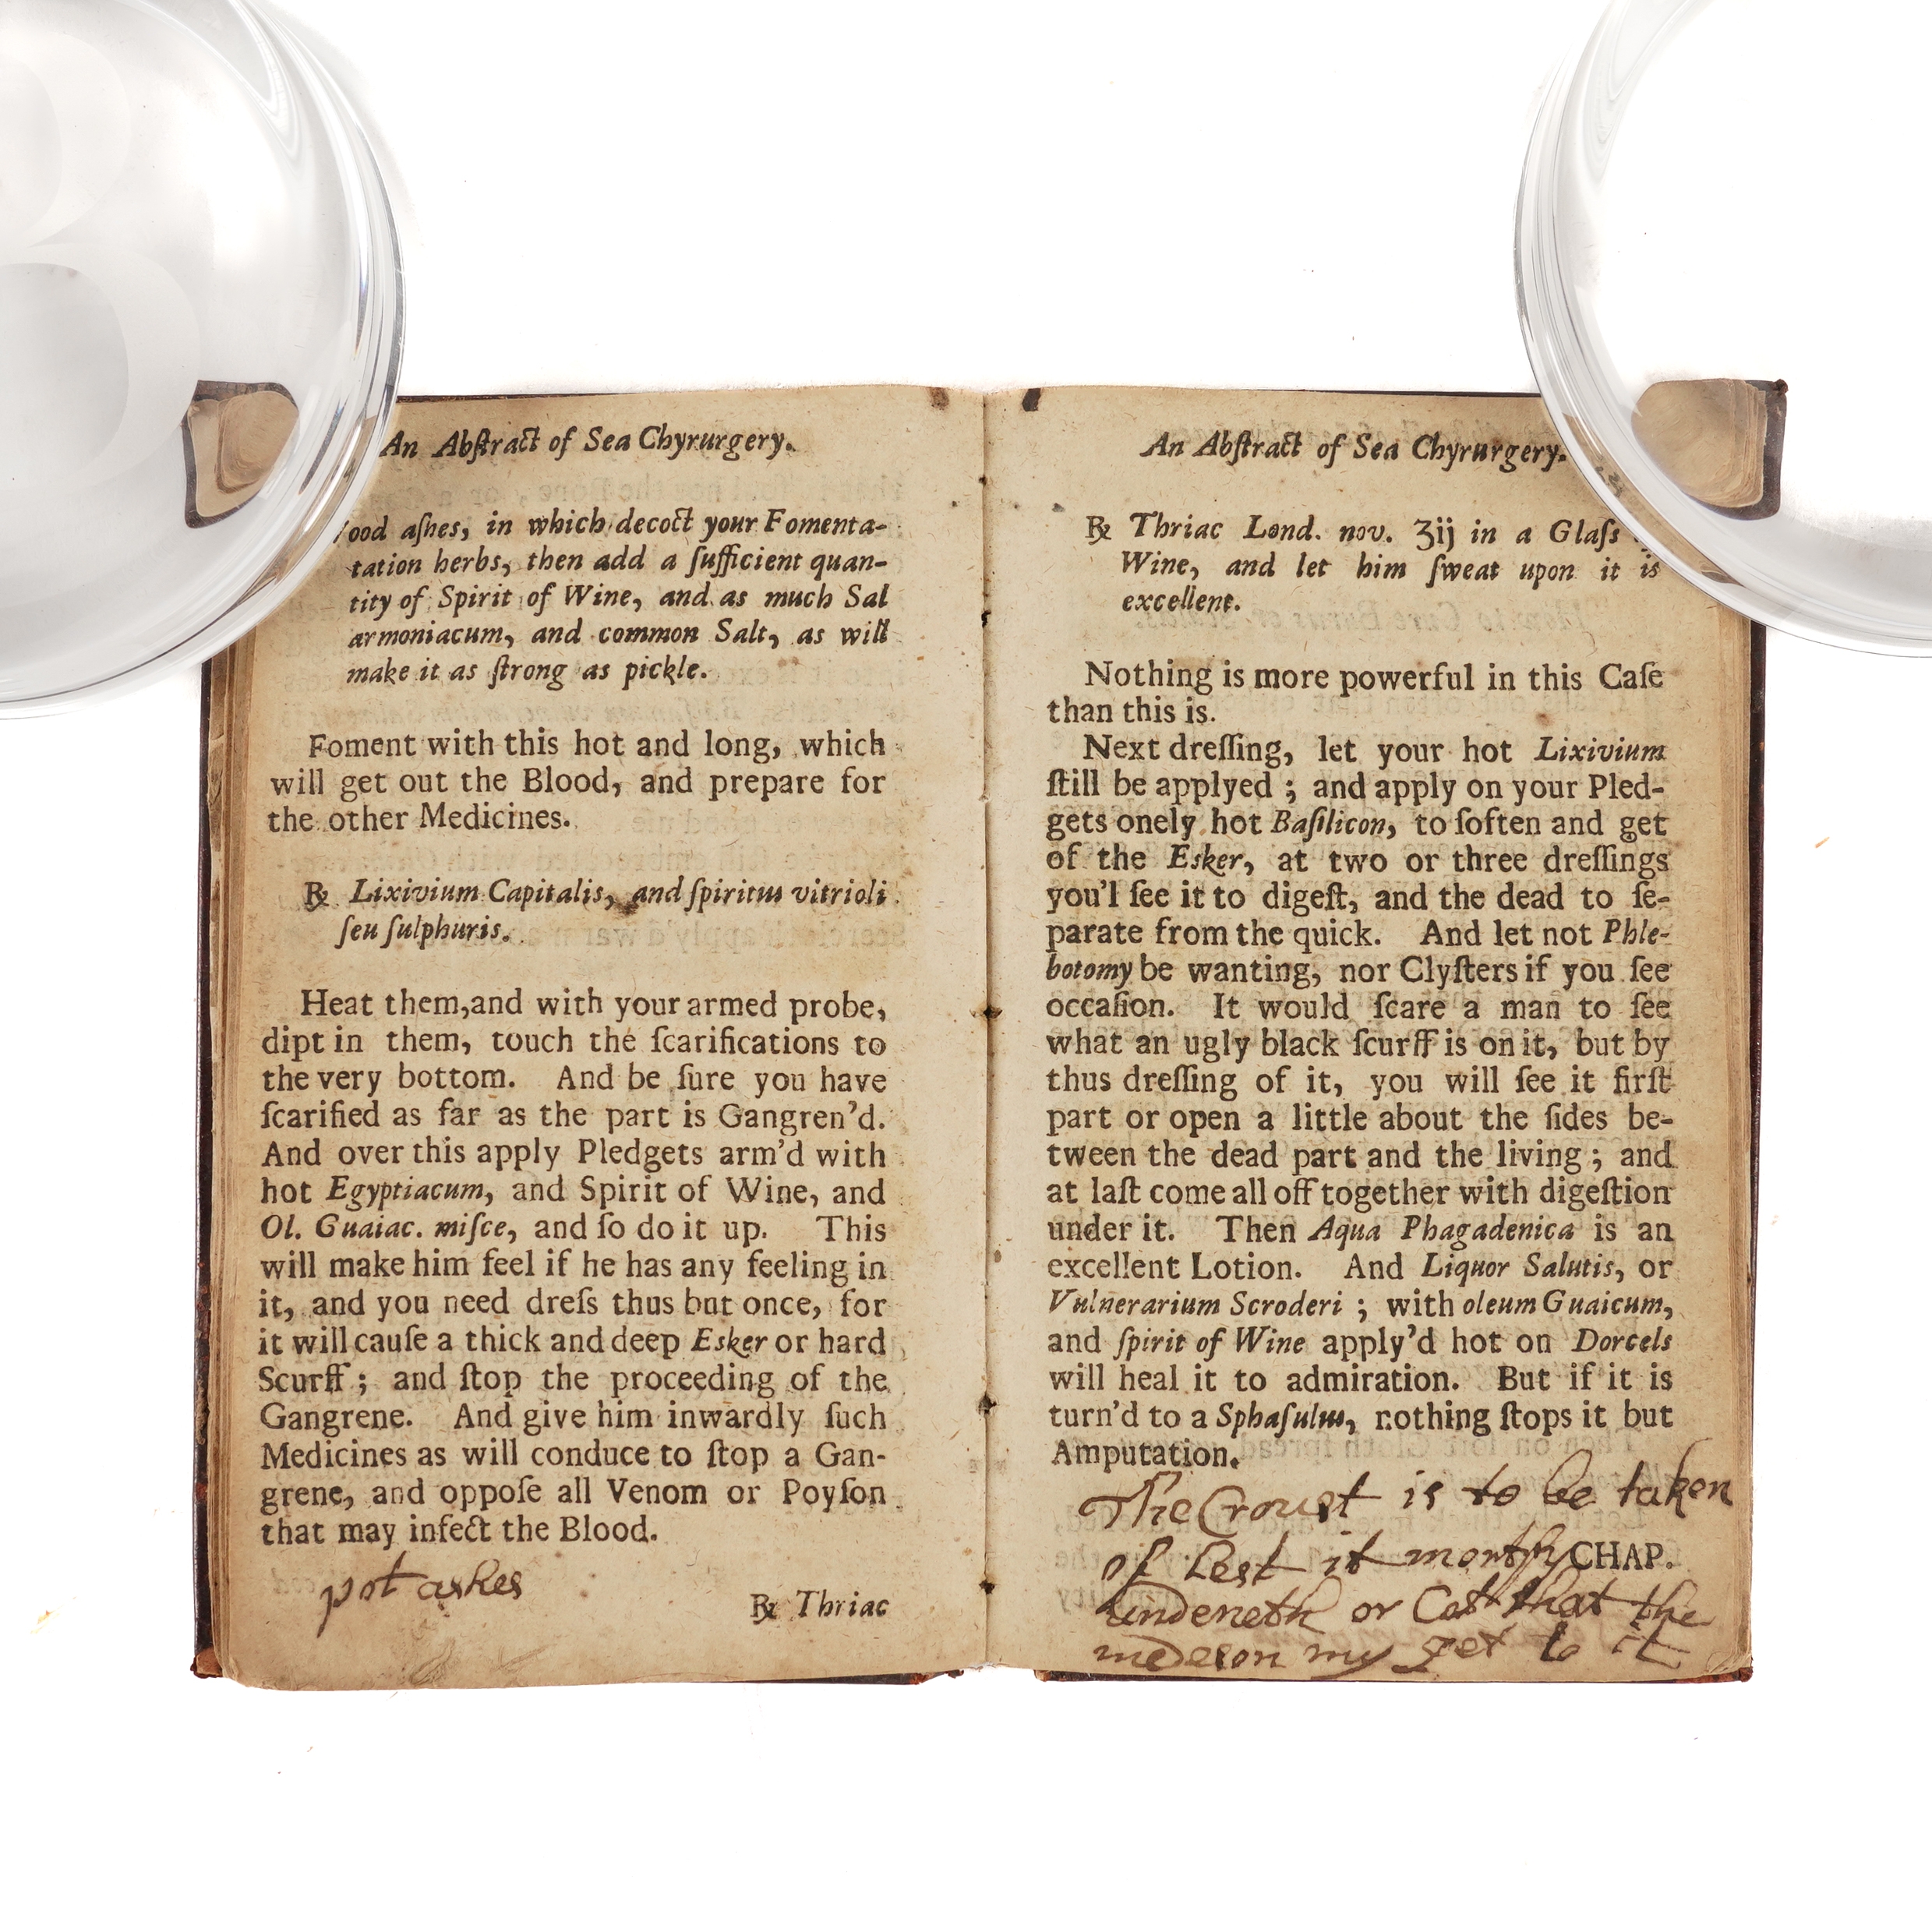 An Abſtract of Sea Chyrurgery.
aſhes, in which decoct your Fomenta-
tation herbs, then add a ſufficient quan-
tity of Spirit of Wine, and as much Sal
armoniacum, and common Salt, as will
make it as ſtrong as pickle.
Foment with this hot and long, which
will get out the Blood, and prepare for
the other Medicines.
℞ Lixivium Capitalis, and ſpiritus vitrioli
ſeu ſulphuris.
Heat them,and with your armed probe,
dipt in them, touch the ſcarifications to
the very bottom. And be ſure you have
ſcarified as far as the part is Gangren'd.
And over this apply Pledgets arm'd with
hot Egyptiacum, and Spirit of Wine, and
Ol. Guaiac. miſce, and ſo do it up. This
will make him feel if he has any feeling in
it, and you need dreſs thus but once, for
it will cauſe a thick and deep Esker or hard
Scurff; and ſtop the proceeding of the
Gangrene. And give him inwardly ſuch
Medicines as will conduce to ſtop a Gan-
grene, and oppoſe all Venom or Poyſon
that may infect the Blood.
pot ashes
℞ Thriac
An Abſtract of Sea Chyrurgery.
℞ Thriac Lond. nov. ʒij in a Glaſs
Wine, and let him ſweat upon it is
excellent.
Nothing is more powerful in this Caſe
than this is.
Next dreſſing, let your hot Lixivium
ſtill be applyed; and apply on your Pled-
gets onely hot Baſilicon, to ſoften and get
of the Esker, at two or three dreſſings
you'l ſee it to digeſt, and the dead to ſe-
parate from the quick. And let not Phle-
botomy be wanting, nor Clyſters if you ſee
occaſion. It would ſcare a man to ſee
what an ugly black ſcurff is on it, but by
thus dreſſing of it, you will ſee it firſt
part or open a little about the ſides be-
tween the dead part and the living; and
at laſt come all off together with digeſtion
under it. Then Aqua Phagadenica is an
excellent Lotion. And Liquor Salutis, or
Vulnerarium Scroderi; with oleum Guaicum,
and ſpirit of Wine apply'd hot on Dorcels
will heal it to admiration. But if it is
turn'd to a Sphaſulus, nothing ſtops it but
Amputation.
The Croust is to be taken
of Lest it mortfy
CHAP.
undeneth or Cot that the
medeson my get to it